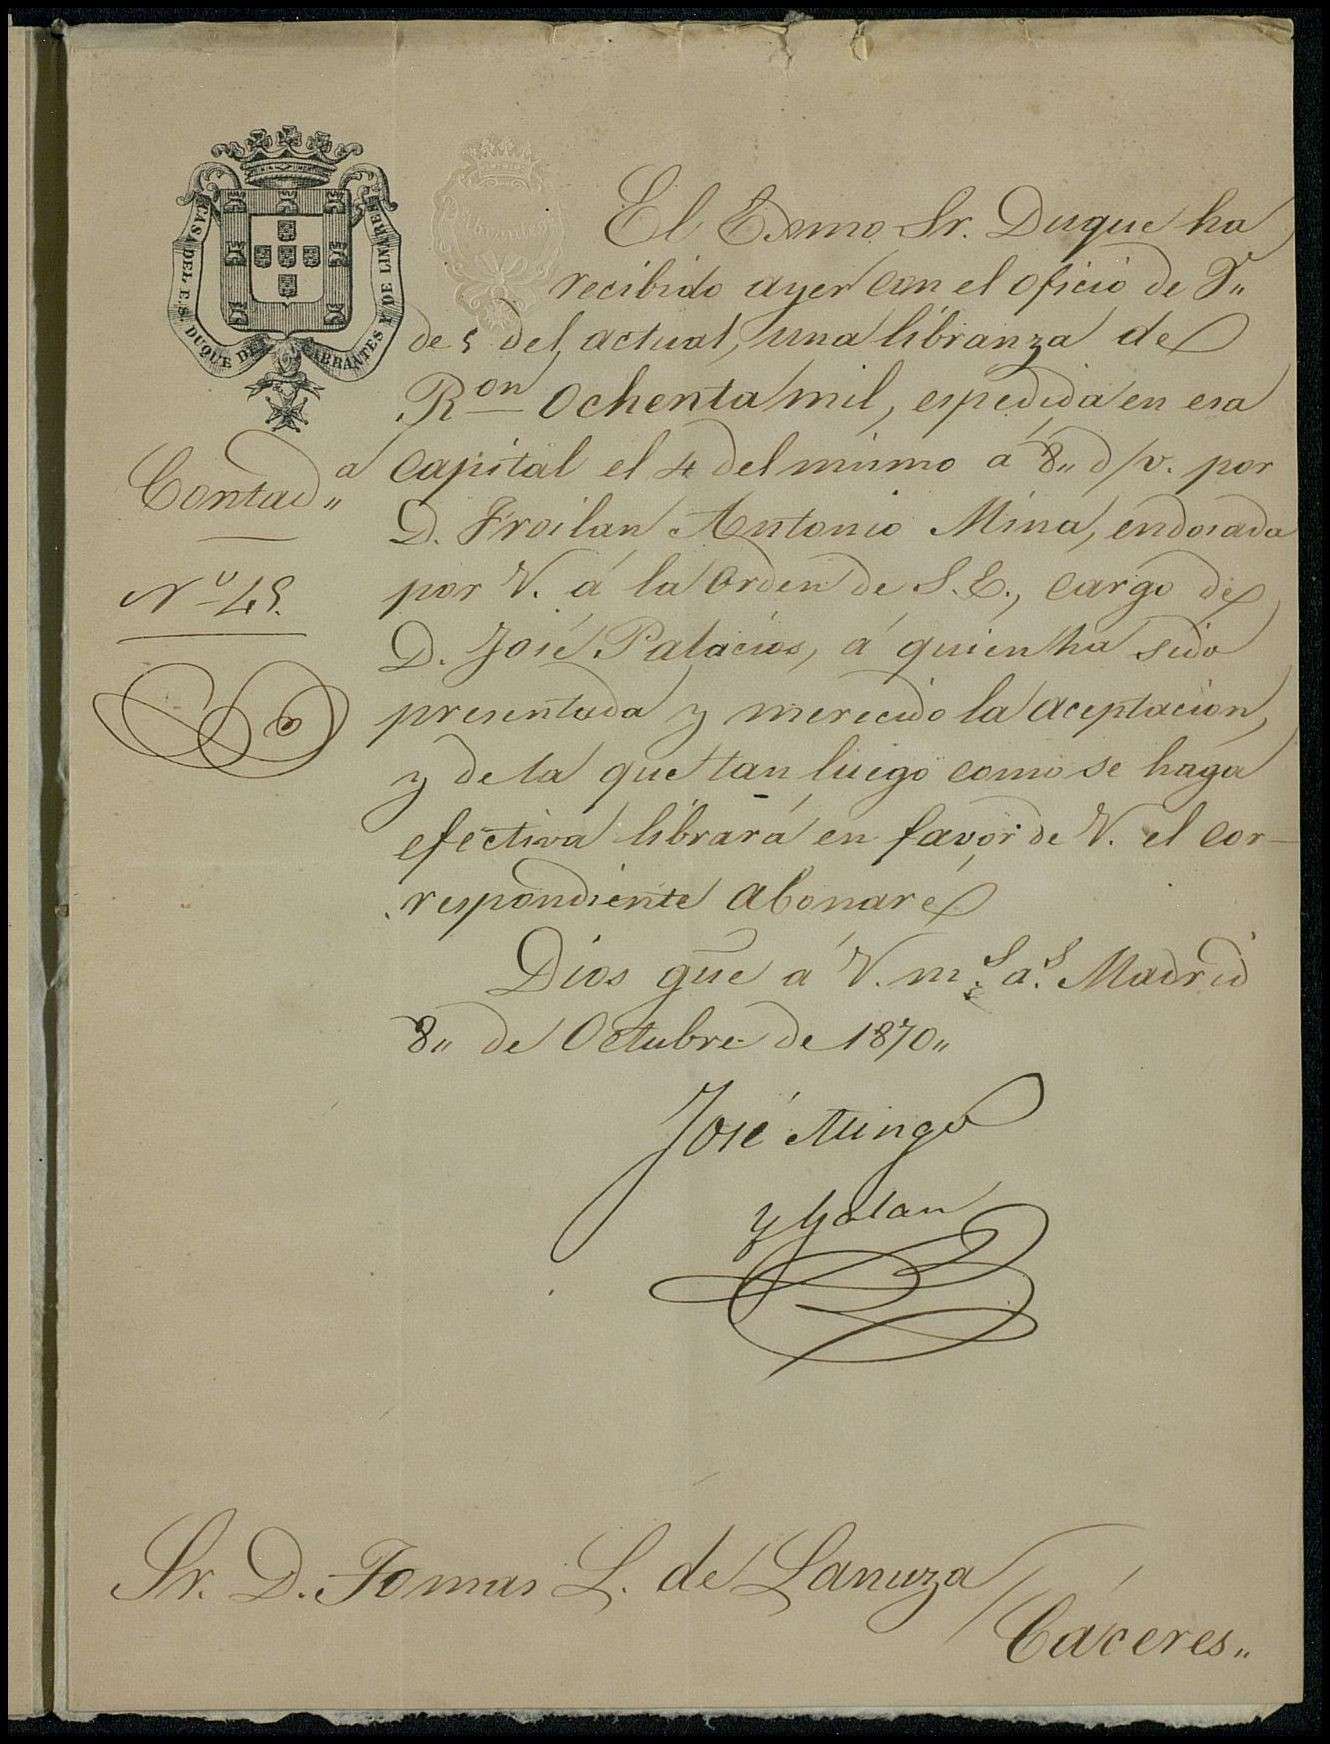 CASA DEL E.S. DUQUE DE ABRANTES Y DE LINARES
El Exmo. Sr. Duque ha
recibido ayer con el oficio de V.
de 5 del actual, una libranza de
Ron. Ochenta mil, espedida en esa
Capital el 4 del mismo á 8,, d/v. por
D. Froilan Antonio Mina, endosada
por V. á la Orden de S.E., cargo de
D. José Palacios, á quien ha sido
presentada y merecido la aceptacion,
y de la que tan luego como se haga
efectiva librará en favor de V. el cor-
respondiente abonaré
Dios gue á V. ms. as. Madrid
8,, de Octubre de 1870,,
Contada
No. 45.
José Mingo
y Galan
Sr. D. Tomas L. de Lanuza / Cáceres,,